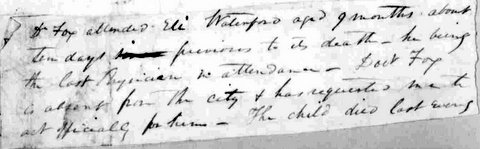 Dr Fox attended Eli Waterford aged 9 months about
ten days previous to its death - he being
the last Physician in attendance - Doct Fox
is absent from the city & has requested me to
act officially for him - The child died last Eveng